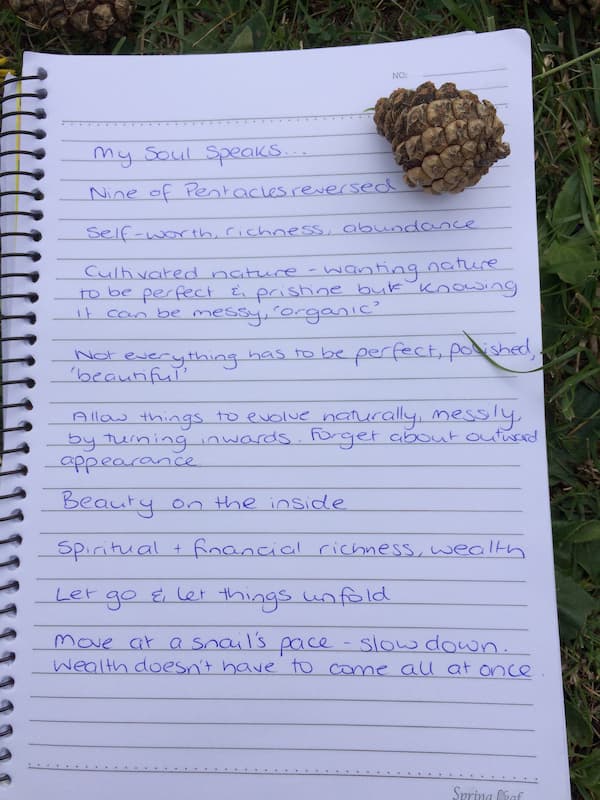 NO:
My Soul Speaks...
Nine of Pentacles reversed
Self-worth, richness, abundance
Cultivated nature - wanting nature
to be perfect & pristine but knowing
it can be messy, 'organic'
Not everything has to be perfect, polished,
'beautiful'
Allow things to evolve naturally, messily,
by turning inwards. Forget about outward
appearance
Beauty on the inside
Spiritual + financial richness, wealth
Let go & let things unfold
Move at a snail's pace - slow down.
Wealth doesn't have to come all at once.
Spring Leaf